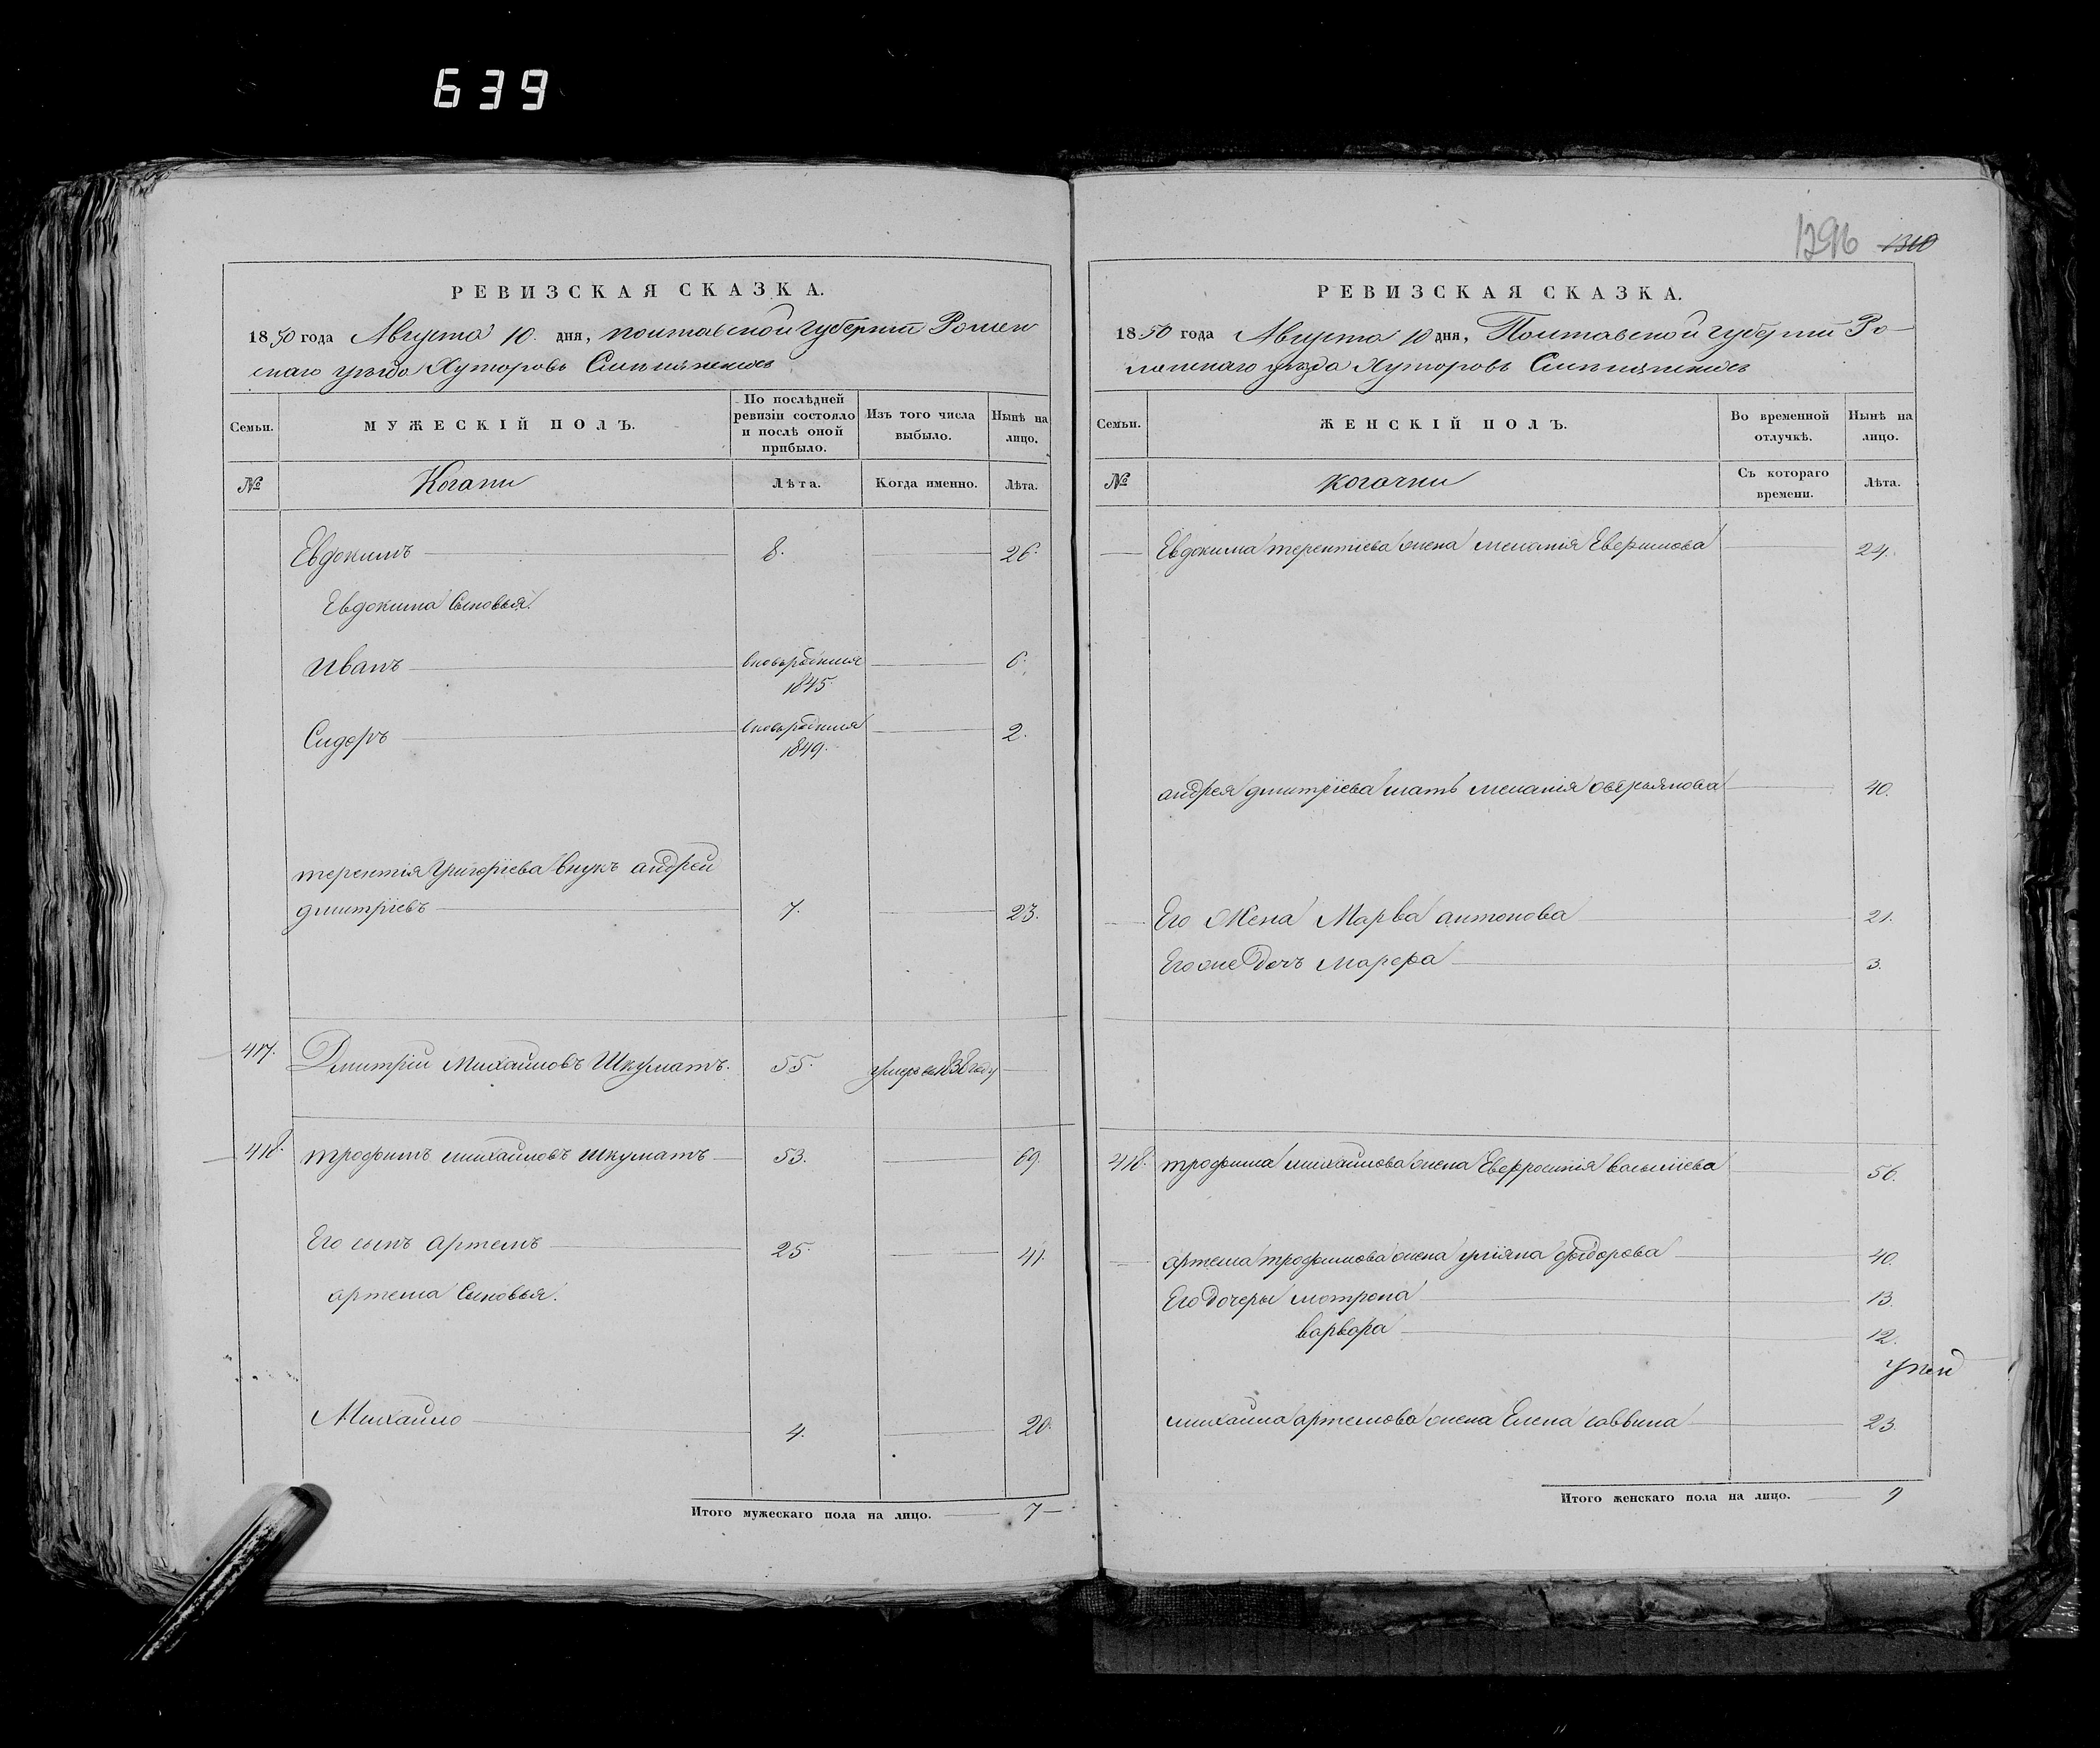 639
1296 1310
РЕВИЗСКАЯ СКАЗКА.
1850 года Августа 10. дня, полтавской губерніи Ромен
скаго уезда Хуторовъ
Семьи.
МУЖЕСКІЙ ПОЛЪ.
По послѣдней ревизіи состояло и послѣ оной прибыло.
Изъ того числа выбыло.
Нынѣ на лицо.
№
Козаки
Лѣта.
Когда именно.
Лѣта.
Евдокимъ 8. 26.
Евдокима Сыновья.
Иванъ вновьрожденный 6.
1845.
Сидоръ вновьрожденный 2.
1849.
терентія Григоріева внукъ андрей
дмитріевъ 7. 23.
417. Дмитрій Михайловъ Шкуматъ. 55. умеръ въ 1838 году
418. трофимъ михайловъ шкуматъ 53. 69.
Его сынъ артемъ 25. 41.
артема Сыновья.
Михайло 4. 20.
Итого мужескаго пола на лицо. 7
РЕВИЗСКАЯ СКАЗКА.
1850 года Августа 10 дня, Полтавской губерніи Ро-
менскаго уезда Хуторовъ
Семьи.
ЖЕНСКІЙ ПОЛЪ.
Во временной отлучкѣ.
Нынѣ на лицо.
№
козачки
Съ котораго времени.
Лѣта.
Евдокима терентіева жена меланія 24.
андрея дмитріева мать меланія оверьянова 40.
Его Жена Марва антонова 21.
Его же Дочъ Марфа 3.
418. трофима михайлова жена Евфросинія василіева 56.
артема трофимова жена уліяна фѣдорова 40.
Его дочеры мотрона 13.
варвара 12.
михайла артемова жена Елена саввина 23.
Итого женскаго пола на лицо. 9